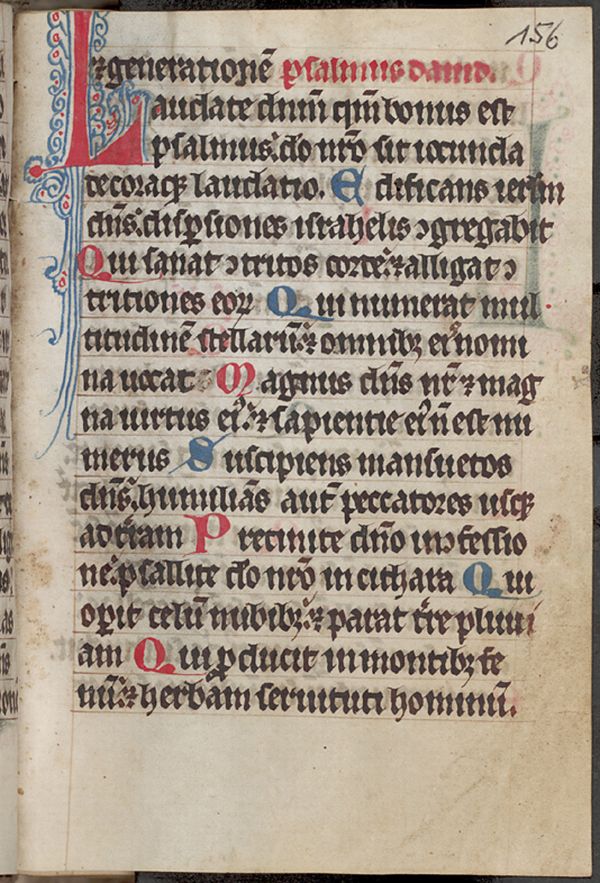 156
⁊ generationē psalmus dauid.
Laudate dnm̄ qm̄ bonus est
psalmus. do nr̄o sit iocunda
decoraqꝫ laudatio. Edificans ierlm̄
dn̄s. disꝑsiones israhelis ↄgregabit
Qui sanat ↄtritos corde. ⁊ alligat ↄ
tritiones eoꝝ Qui numerat mul
titudinē stellarū. ⁊ omnibꝫ eiꝰ nomi
na uocat Magnus dn̄s nr̄ ⁊ mag
na uirtus eiꝰ. ⁊ sapientie eiꝰ n̄ est nu
merus Suscipiens mansuetos
dn̄s. humiliās aut̄ peccatores usqꝫ
ad tr̄am Precinite dn̄o in ↄfessio
ne. psallite do nr̄o in cithara Qui
oꝑit celū nubibꝫ. ⁊ parat tr̄e pluui
am Qui ꝓducit in montibꝫ fe
nū. ⁊ herbam seruituti hominū.